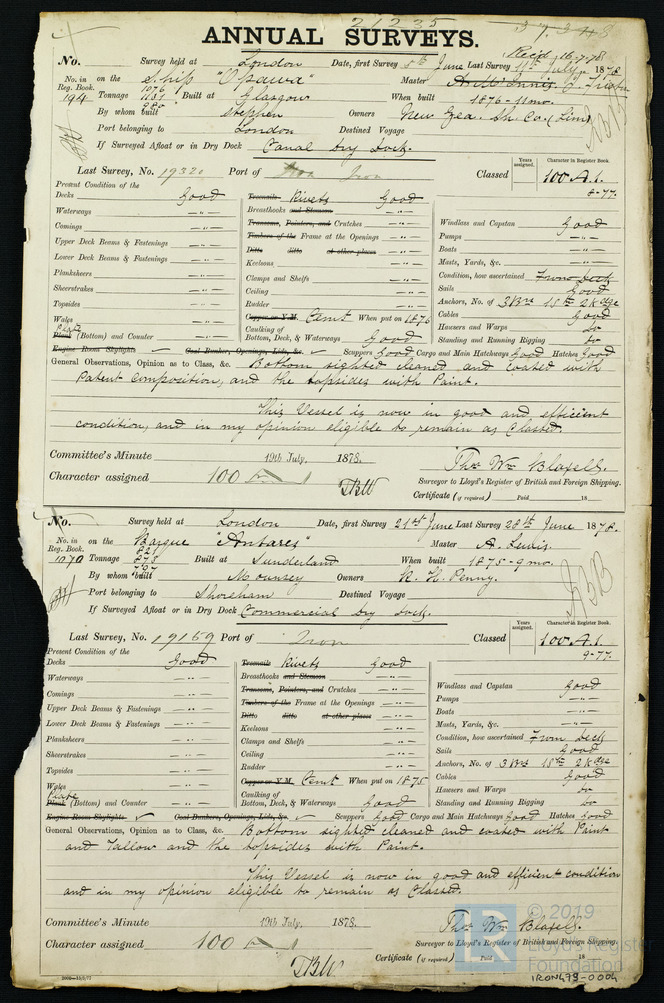 21235
ANNUAL SURVEYS.
Recd 16-7-78
No. Survey held at London Date, first Survey 5th June Last Survey July 1878
No. in Reg. Book. 194 on the Ship "Opawa" Master
Tonnage 1076 1131 Built at Glasgow When built 1876-11mo.
By whom built Stephen Owners New Zea. Sh. Co. (Lim)
Port belonging to London Destined Voyage
If Surveyed Afloat or in Dry Dock Canal Dry Dock.
Last Survey, No. 19320 Port of Iron Classed Years assigned. Character in Register Book 100 A.1.
8-77.
Present Condition of the
Decks Good
Waterways -"-
Comings -"-
Upper Deck Beams & Fastenings -"-
Lower Deck Beams & Fastenings -"-
Planksheers -"-
Sheerstrakes -"-
Topsides -"-
Wales -"-
Plate
Plank (Bottom) and Counter -"-
Treenails Rivets Good
Breasthooks and Stemson -"-
Transoms, Pointers, and Crutches -"-
Timbers of the Frame at the Openings -"-
Ditto ditto at other places -"-
Keelsons -"-
Clamps and Shelfs -"-
Ceiling -"-
Rudder -"-
Copper or Y.M. Cemt When put on 1876
Caulking of Bottom, Deck, & Waterways Good
Windlass and Capstan Good
Pumps -"-
Boats -"-
Masts, Yards, &c. -"-
Condition, how ascertained From Deck
Sails Good
Anchors, No. of 3Brs 1Sth 2Kdge
Cables Good
Hausers and Warps Do
Standing and Running Rigging Do
Engine Room Skylights Coal Bunker, Openings, Lids, &c. Scuppers Good Cargo and Main Hatchways Good Hatches Good
General Observations, Opinion as to Class, &c. Bottom sighted cleaned and coated with
Patent Composition, and the topsides with Paint.
This Vessel is now in good and efficient
condition, and in my opinion eligible to remain as Classed.
Committee's Minute 19th July, 1878.
Character assigned 100 A 1
TBW
Thos Wm Blaxell.
Surveyor to Lloyd's Register of British and Foreign Shipping.
Certificate (if required) Paid 18
No. Survey held at London Date, first Survey 21st June Last Survey 28th June 1878.
No. in Reg. Book. 1070 on the Barque "Antares" Master A. Lewis.
Tonnage Built at Sunderland When built 1875-9mo.
By whom built Mounsey Owners R. H. Penny.
Port belonging to Shoreham Destined Voyage
If Surveyed Afloat or in Dry Dock Commercial Dry Dock.
Last Survey, No. 19169 Port of Iron Classed Years assigned. Character in Register Book. 100 A.1.
9-77.
Present Condition of the
Decks Good
Waterways -"-
Comings -"-
Upper Deck Beams & Fastenings -"-
Lower Deck Beams & Fastenings -"-
Planksheers -"-
Sheerstrakes -"-
Topsides -"-
Wales -"-
Plate
Plank (Bottom) and Counter -"-
Treenails Rivets Good
Breasthooks and Stemson -"-
Transoms, Pointers, and Crutches -"-
Timbers of the Frame at the Openings -"-
Ditto ditto at other places -"-
Keelsons -"-
Clamps and Shelfs -"-
Ceiling -"-
Rudder -"-
Copper or Y.M. Cemt When put on 1875
Caulking of Bottom, Deck, & Waterways Good
Windlass and Capstan Good
Pumps -"-
Boats -"-
Masts, Yards, &c. -"-
Condition, how ascertained From Deck
Sails Good
Anchors, No. of 3Brs 1Sth 2Kdge
Cables Good
Hausers and Warps Do
Standing and Running Rigging Do
Engine Room Skylights Coal Bunkers, Openings, Lids, &c. Scuppers Good Cargo and Main Hatchways Good Hatches Good
General Observations, Opinion as to Class, &c. Bottom sighted cleaned and coated with Paint
and Tallow and the topsides with Paint.
This Vessel is now in good and efficient condition
and in my opinion eligible to remain as Classed.
Committee's Minute 19th July, 1878.
Character assigned 100 A 1
TBW
Thos Wm Blaxell.
Surveyor to Lloyd's Register of British and Foreign Shipping.
Certificate (if required) Paid 18
© 2019
Lloyd's Register
Foundation
IRON478-0004